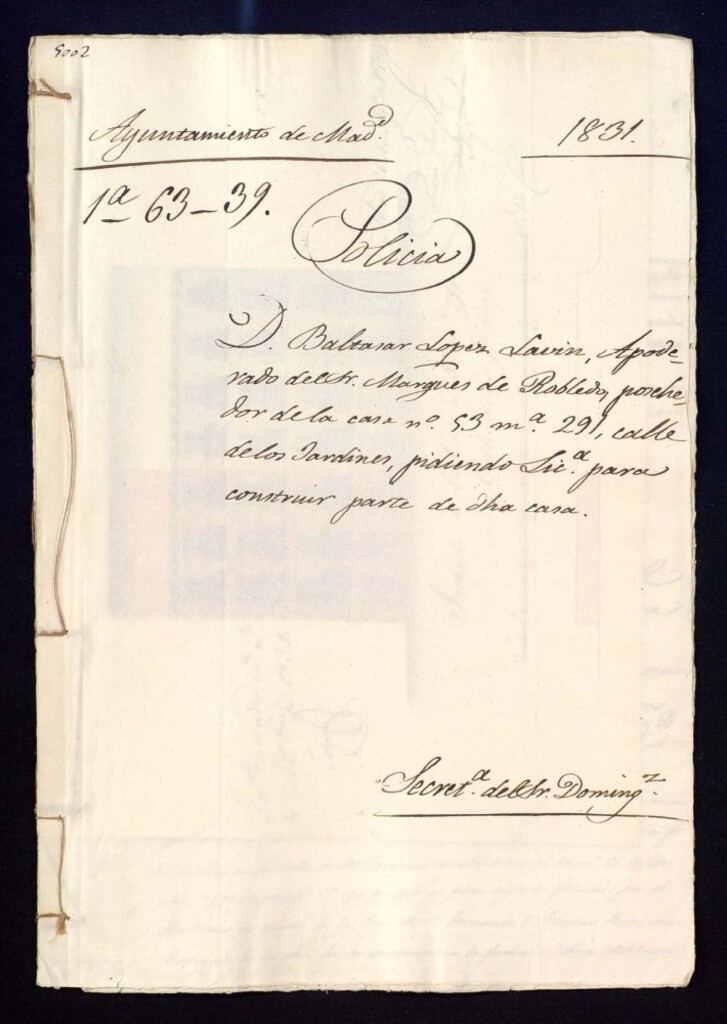 5002
Ayuntamiento de Madᵈ.
1831.
1ª 63-39.
Policia
D. Baltasar Lopez Lavin, Apode-
rado del Sr. Marques de Robledo, posehe-
dor de la casa nº. 53 mª. 291, calle
de los Jardines, pidiendo Licª. para
construir parte de dha casa.
Secretª. del Sr. Domingᶻ.